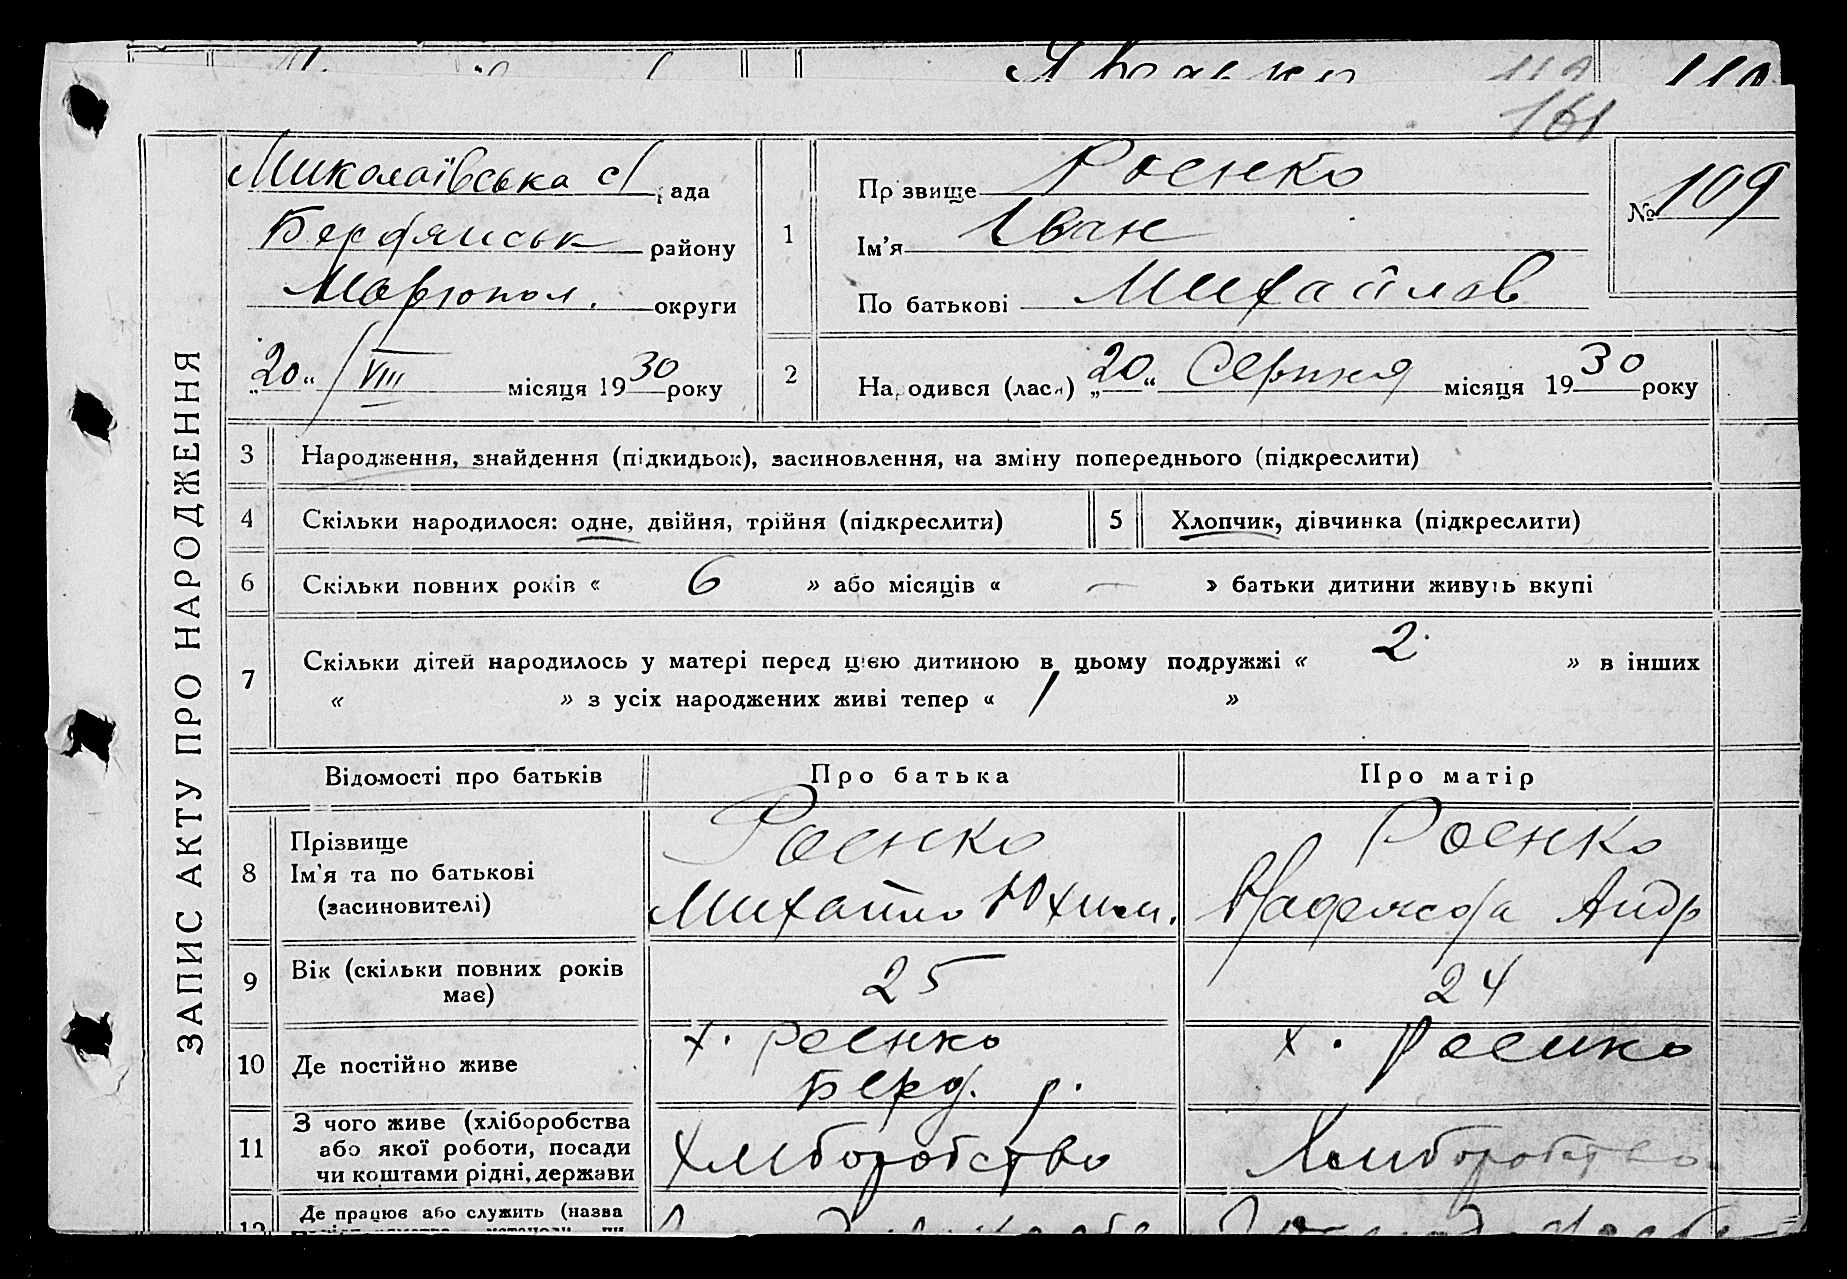 161
ЗАПИС АКТУ ПРО НАРОДЖЕННЯ
Миколаївська с/рада
Бердянськ району
Маріюпол. округи
„20“ VIII місяця 1930 року
1
Прізвище Роенко
Ім’я Іван
По батькові Михайлов
№ 109
2
Народився (лася) „20“ Серпня місяця 1930 року
3 Народження, знайдення (підкидьок), засиновлення, на зміну попереднього (підкреслити)
4 Скільки народилося: одне, двійня, трійня (підкреслити) 5 Хлопчик, дівчинка (підкреслити)
6 Скільки повних років « 6 » або місяців « — » батьки дитини живуть вкупі
7 Скільки дітей народилось у матері перед цією дитиною в цьому подружжі « 2 » в інших
« » з усіх народжених живі тепер « 1 »
Відомості про батьків Про батька Про матір
8 Прізвище Роенко Роенко
Ім’я та по батькові
(засиновителі) Михайло Юхим. Надежда Андр
9 Вік (скільки повних років має) 25 24
10 Де постійно живе х. Роенко х. Роенко
Берд. р.
11 З чого живе (хліборобства
або якої роботи, посади
чи коштами рідні, держави Хлиборобство Хлиборобство
12 Де працює або служить (назва